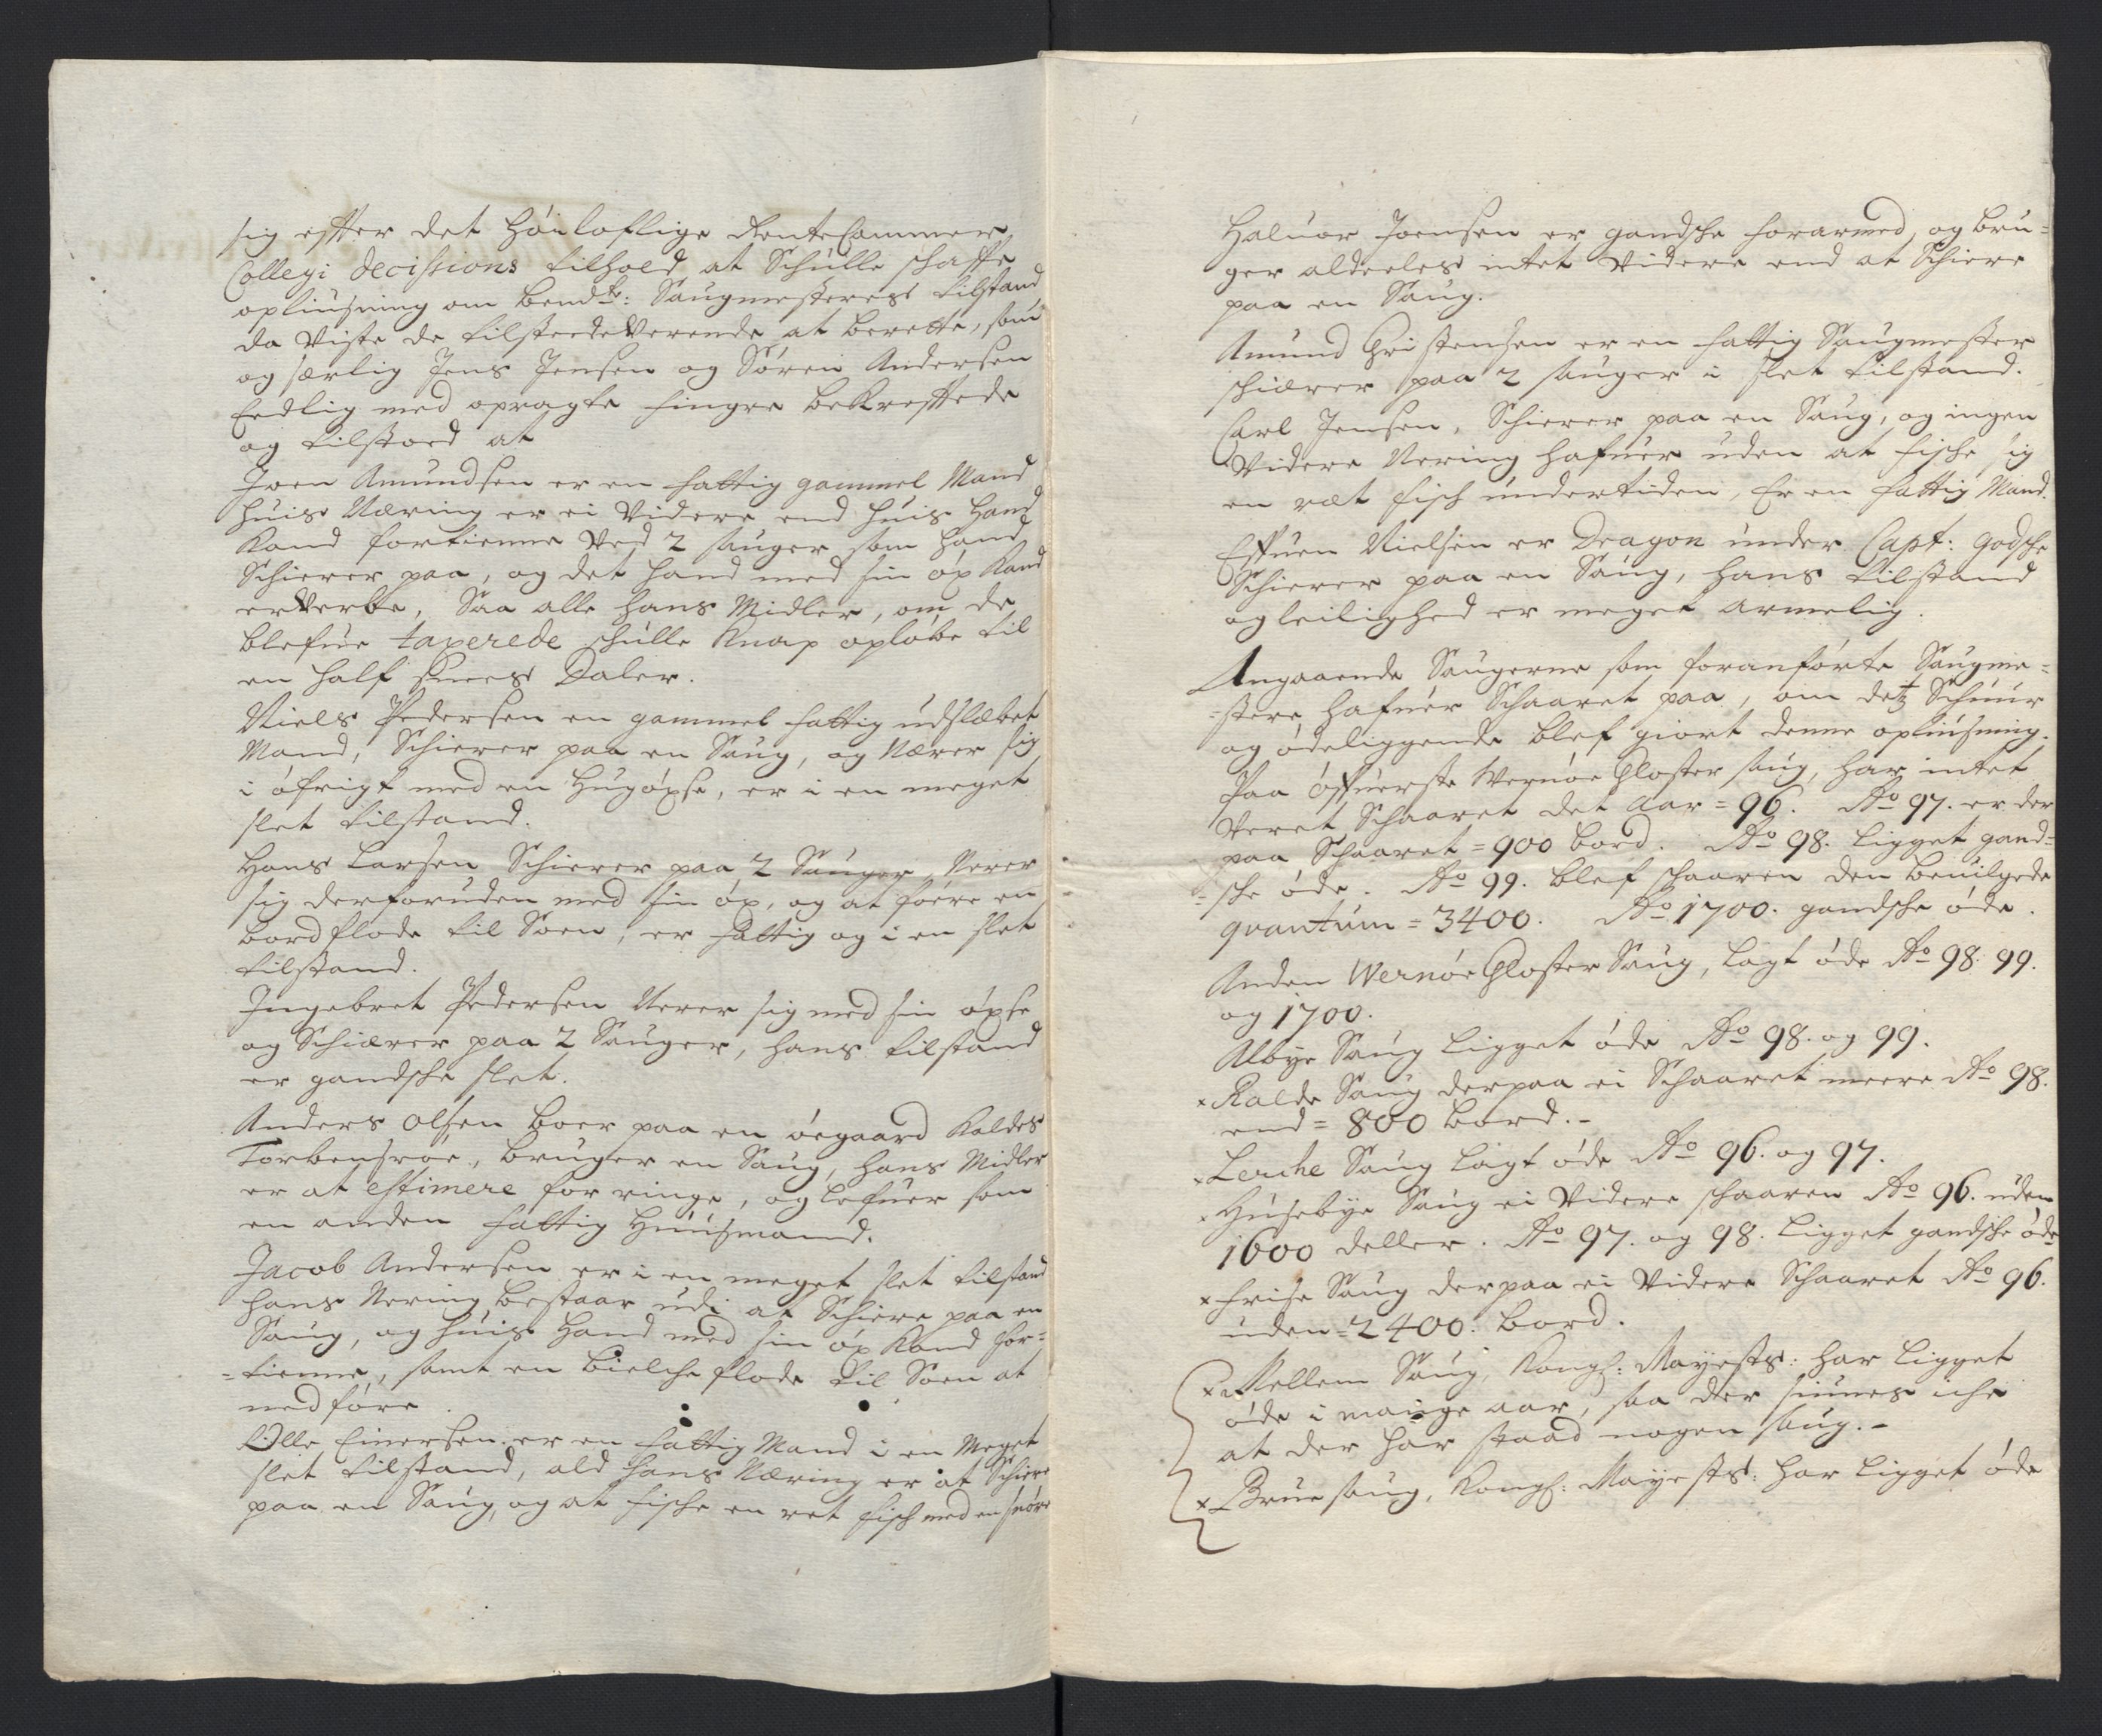 sig efter det höiloflige RenteCammer
Collegi decissions tilhold at Schulle schaffe
opliusning om bemdte: Saugmesteres tilstand
da viste de tilstedeVerende at berette, som
og særlig Jens Jensen og Sören Andersen
Eedlig med opragte fingre beKreftede
og tilstoed at
Iven Amundsen er en fattig gammel Mand
huis Næring er ei Videre end huis hand
Kand fortienne Ved 2 sauger som hand
Schierer paa, og det hand med sin öx Kand
erVerbe, Saa alle hans Midler, om de
blefue taxerede schulle Knap oplöbe til
en half snees Daler.
Niels Pedersen en gammel fattig udslæbet
Mand, Schierer paa en Saug, og Nærer sig
i öfrigt med en hugöxse, er i en meget
slet tilstand.
Hans Larsen Schierer paa 2 Sauger, Nerer
sig derforuden med sin öx, og at föere en
bord flode til Söen, er fattig og i en slet
tilstand.
Ingebret Pedersen Nerer sig med sin öxse
og Schiærer paa 2 Sauger, hans tilstand
er gandsche slet.
Anders Olsen boer paa en öegaard Kaldes
Torbensröe, bruger en Saug, hans Midler
er at estimere for ringe, og lefuer som
en anden fattig Huusmand.
Jacob Andersen er i en meget slet tilstand
hans Nering bestaar udi at Schiere paa en
Saug, og huis hand med sin öx Kand for=
=tienne, samt en bielche flode til Söen at
nedföre.
Olle Einersen er en fattig Mand i en Meget
slet tilstand, ald hans Næring er at Schiere
paa en Saug, og at fische en ret fisch med en snöre
Haluor Joensen er gandsche forarmed, og bru=
ger aldeeles intet videre end at Schiere
paa en Saug.
Amund Christensen er en fattig Saugmester
schiærer paa 2 sauger i slet tilstand.
Carl Jensen, Schierer paa en Saug, og ingen
Videre Nering hafuer uden at fische sig
en ræt fisch undertiden, Er en fattig Mand.
Effuen Nielsen er Dragon under Capt: Godsche
Schierer paa en Saug, hans tilstand
og leilighed er meget armelig.
Angaaende Saugerne som foranförte Saugme=
=stere hafuer Schaaret paa, om detz Schuur
og ödeliggende blef giort denne opliusning.
Paa öffuerste Wernöe Closter saug, har intet
veret Schaaret det Aar = 96. Ao 97. er der
paa Schaaret = 900 bord. Ao 98. ligget gand=
=sche öde. Ao 99. blef schaaren den beuilgede
qvantum = 3400. Ao 1700. gandsche öde.
Anden Wernöe Closter Saug, lagt öde Ao 98. 99.
og 1700.
Albye Saug ligget öde Ao 98. og 99.
× Kalde Saug derpaa ei Schaaret meere Ao 98.
end = 800 bord. -
× Lerche Saug lagt öde Ao 96. og 97.
× Husebye Saug ei Videre schaaren Ao 96. uden
1600 deller. Ao 97. og 98. ligget gandsche öde
× Frise Saug derpaa ei Videre Schaaret Ao 96.
uden = 2400. bord.
× Mellem Saug, Kongl: Mayests: har ligget
öde i mange aar, saa der siunes iche
at der har staad nogen saug. -
× Brue saug, Kongl: Mayests: har ligget öde